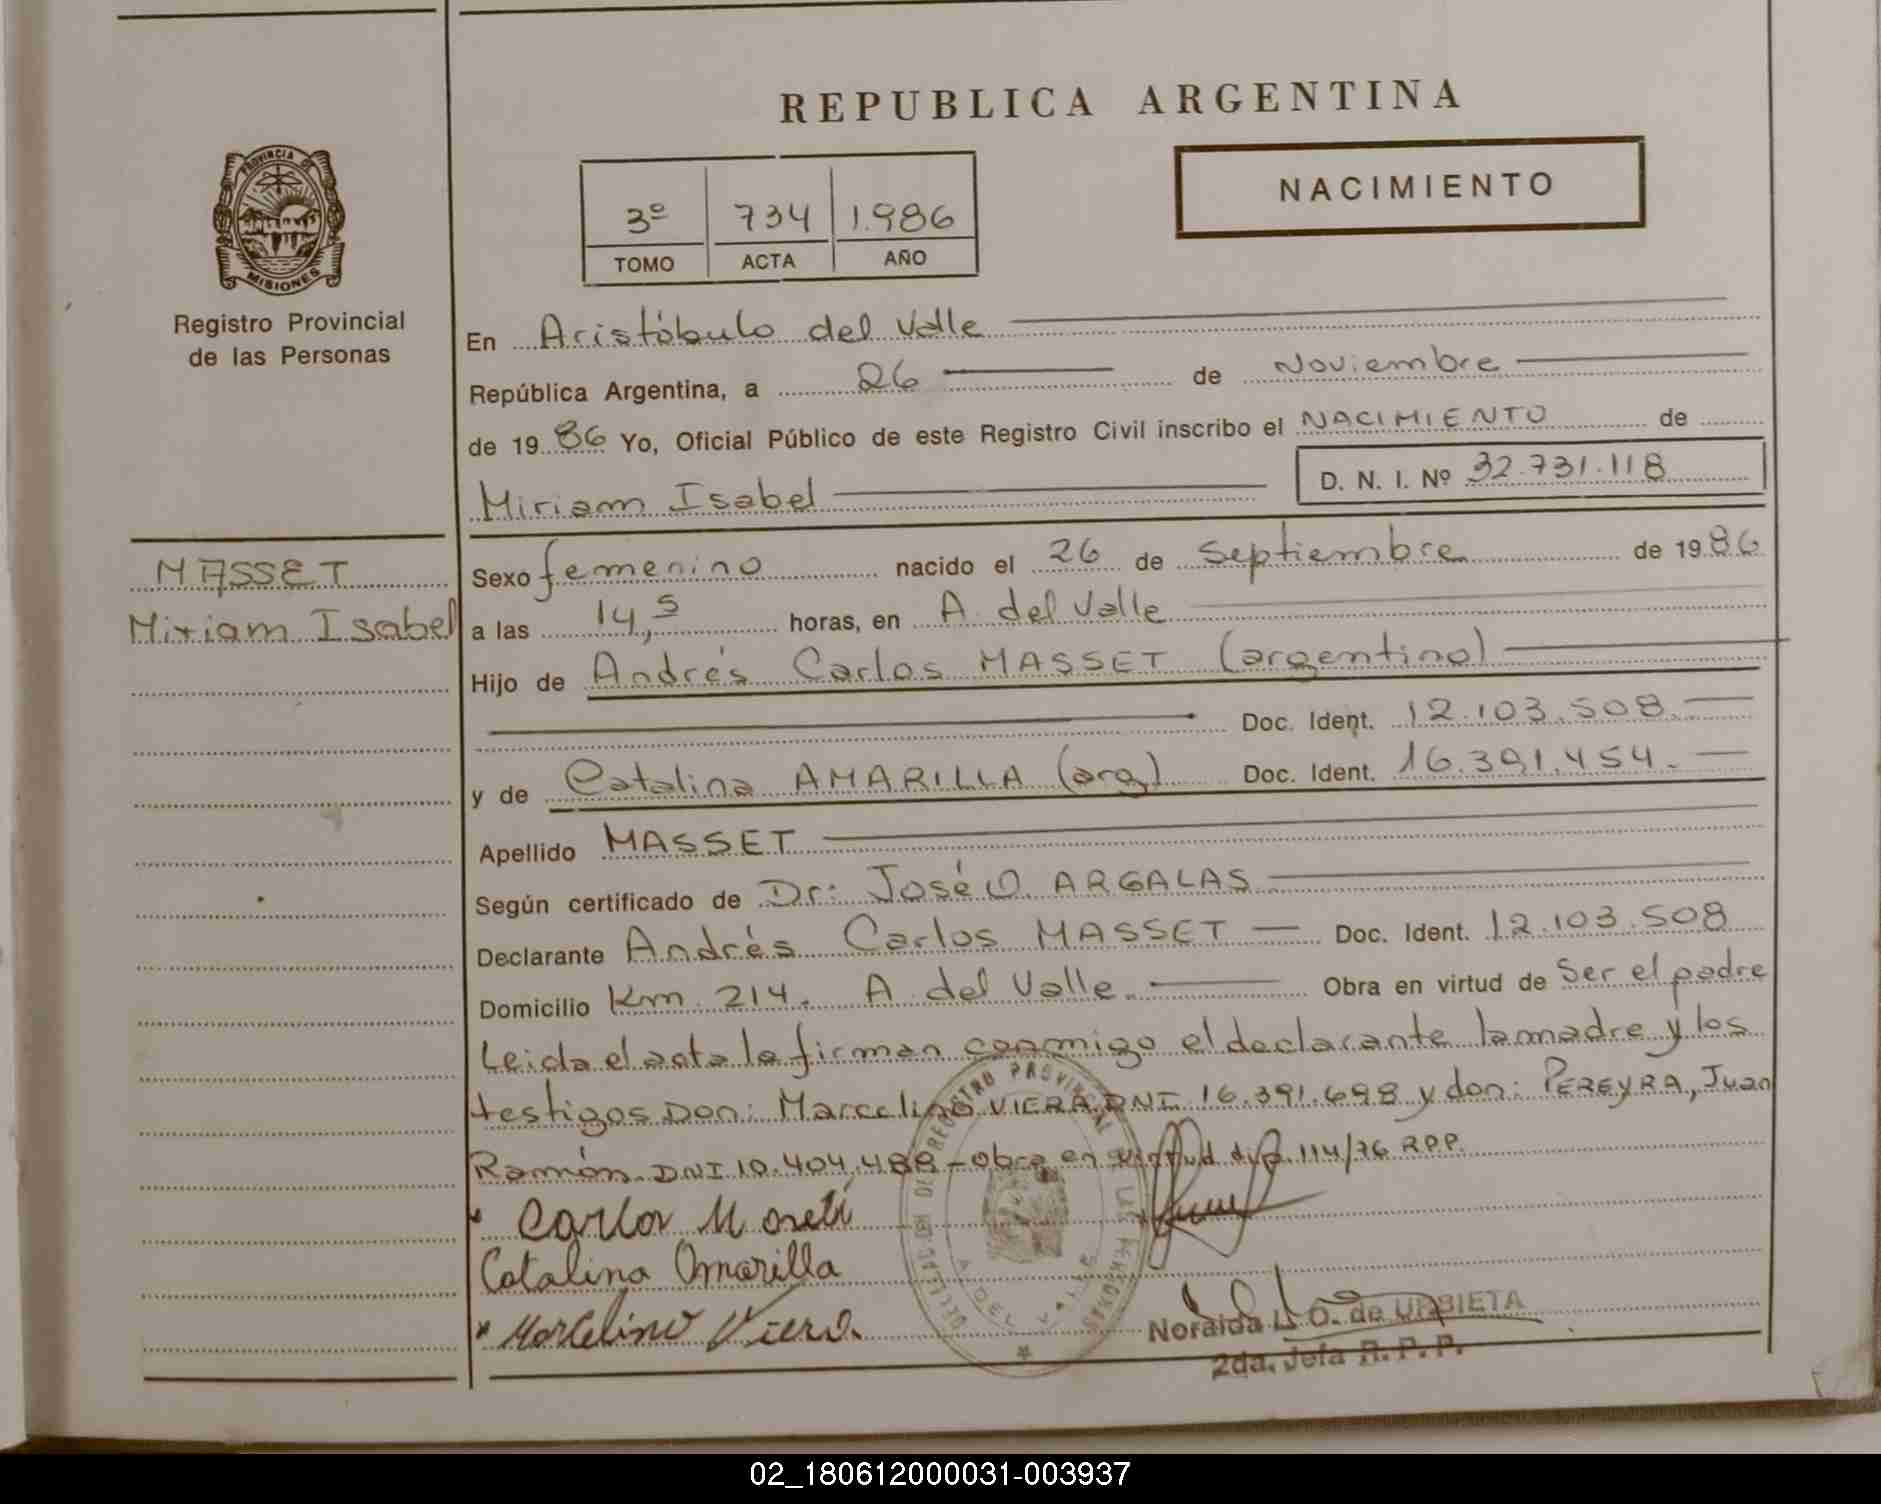 REPUBLICA ARGENTINA
PROVINCIA DE
MISIONES
Registro Provincial
de las Personas
NACIMIENTO
3º 734 1.986
TOMO ACTA AÑO
En Aristóbulo del Valle
República Argentina, a 26 de Noviembre
de 19 86 Yo, Oficial Público de este Registro Civil inscribo el NACIMIENTO de
Miriam Isabel D. N. I. Nº 32.731.118
MASSET
Miriam Isabel
Sexo femenino nacido el 26 de Septiembre de 19 86
a las 14,5 horas, en A. del Valle
Hijo de Andrés Carlos MASSET (argentino)
Doc. Ident. 12.103.508
y de Catalina AMARILLA (arg) Doc. Ident. 16.391.454.
Apellido MASSET
Según certificado de Dr: José O. ARGALAS
Declarante Andrés Carlos MASSET Doc. Ident. 12.103.508
Domicilio Km. 214. A del Valle. Obra en virtud de Ser el padre
Leida el acta la firman conmigo el declarante la madre y los
testigos Don: Marcelino VIERA DNI 16.391.698 y don: PEREYRA, Juan
Ramón. DNI 10.404.488 - obra en virtud disp. 114/76 R.P.P.
Catalina Amarilla
Marcelino Viera.
DELEGACION DE REGISTRO PROVINCIAL DE LAS PERSONAS
Noraida L. O. de URBIETA
2da. Jefa R. P. P.
02_180612000031-003937